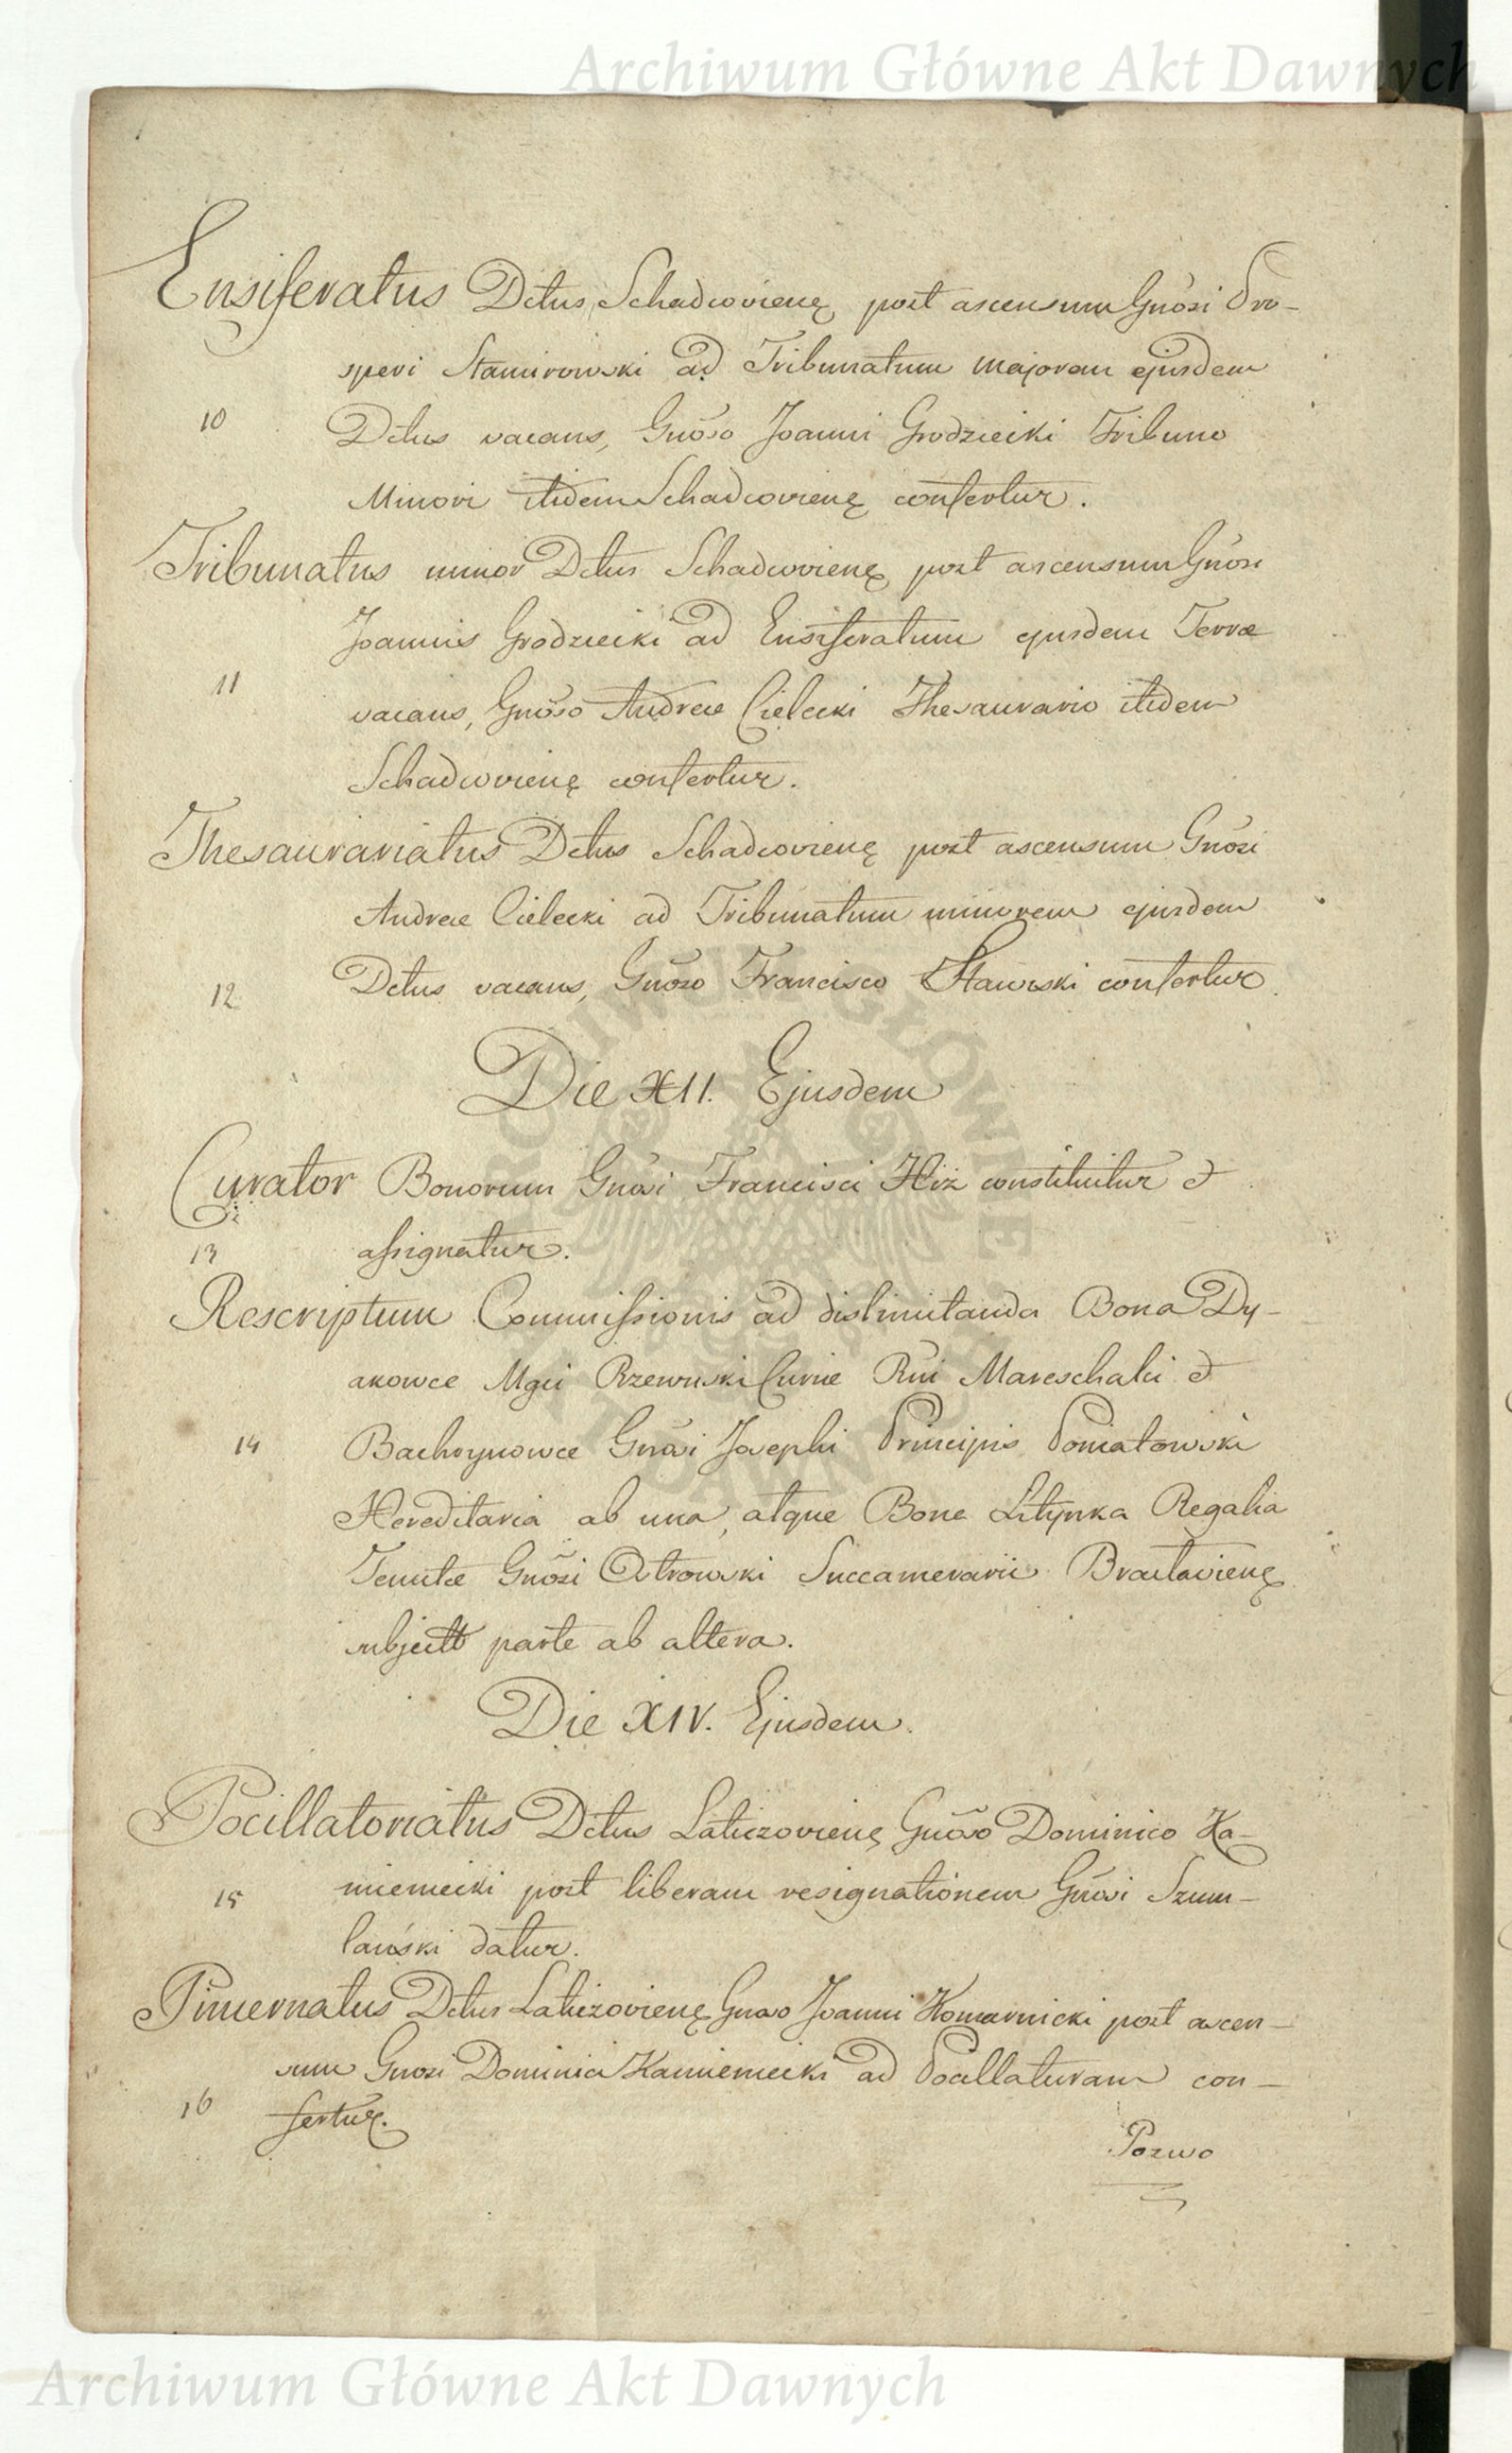 Archiwum Główne Akt Dawnych
Ensiferatus Dctus Schadcovienę post ascensum Gnosi Pro-
speri Stamirowski ad Tribunatum majorem ejusdem
10 Dctus vacans, Gnoso Joanni Grodziecki Tribuno
Minori itidem Schadcovienę confertur.
Tribunatus minor Dctus Schadcovienę post ascensum Gnosi
Joannis Grodziecki ad Ensiferatum ejusdem Terræ
11 vacans, Gnoso Andreæ Cielecki Thesaurario itidem
Schadcovienę confertur.
Thesaurariatus Dctus Schadcovienę post ascensum Gnosi
Andreæ Cielecki ad Tribunatum minorem ejusdem
12 Dctus vacans, Gnoso Francisco Stawski confertur.
Die XII. Ejusdem
Curator Bonorum Gnosi Francisci Hiż constituitur et
13 assignatur.
Rescriptum Commissionis ad dislimitanda Bona Dy-
akowce Mgci Rzewuski Curiæ Rni Mareschalci et
14 Bachrynowce Gnosi Josephi Principis Poniatowski
Hereditaria ab una, atque Bona Litynka Regalia
Tenutæ Gnosi Ostrowski Succamerarii Braclavienę
subjecta parte ab altera.
Die XIV. Ejusdem.
Pocillatoriatus Dctus Laticzovienę Gnoso Dominico Ka-
15 mieniecki post liberam resignationem Gnosi Szum-
lański datur.
Pincernatus Dctus Laticzovienę Gnoso Joanni Komarnicki post ascen-
sum Gnosi Dominici Kamieniecki ad Pocillaturam con-
16 fertur.
Pozwo
Archiwum Główne Akt Dawnych